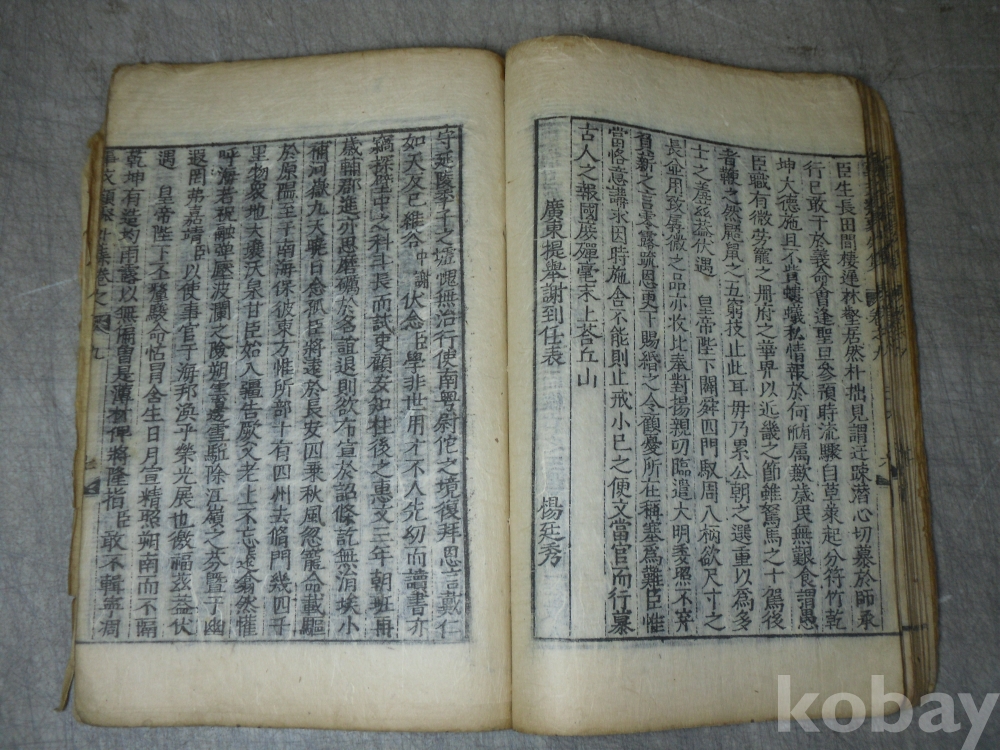 臣生長田間棲遲林壑居然朴拙見謂迂疎潛心切慕於師承
行已敢干於義命首逢聖旦叅預時流驟自草萊起分符竹乾
坤大德施且不貲螻蟻私情報於何所屬歉歳民無艱食謂愚
臣職有微勞寵之周府之華畀以近畿之節雖駑馬之十駕後
者鞭之然鼯鼠之五窮技止此耳毋乃累公朝之選重以爲多
士之羞兹蓋伏遇 皇帝陛下闢舜四門馭周八柄欲尺寸之
長僉用致髮微之品亦收比奉對揚親切臨遣大明委照不弃
負薪之言零露疏恩更下賜緡之令顧憂所在稱塞爲難臣惟
當恪意講求因時施舍不能則止戒小已之便文當官而行纂
古人之報國庶殫毫末上荅丘山
廣東提舉謝到任表 楊廷秀
守延陵季子之墟愧無治行使南粤尉佗之境復拜恩言戴仁
如天反已維谷中謝 伏念臣學非世用才不人先幼而讀書亦
竊探壁中之科斗長而試吏顧安知柱後之惠文三年朝班再
歳輔郡進亦思磨礪於名誼退則欲布宣於詔條訖無涓埃小
補河嶽九天曉日念孤臣將遠於長安四乗秋風忽寵命載驅
於原隰王于南海保彼東方惟所部十有四州去脩門幾四千
里物衆地大壤沃泉甘臣如入疆告厥父老上不忘遠翕然懽
呼海若祝融弭壓波瀾之險朔雲邊雪駈除江嶺之氛曁于幽
遐罔弗嘉靖臣以使事官于海邦渙乎榮光展也徼福兹蓋伏
遇 皇帝陛下不釐駿命怙冒含生日月宣精照朔南而不隔
乾坤有造均雨露以無
將隆指臣敢不輯寧凋
kobay